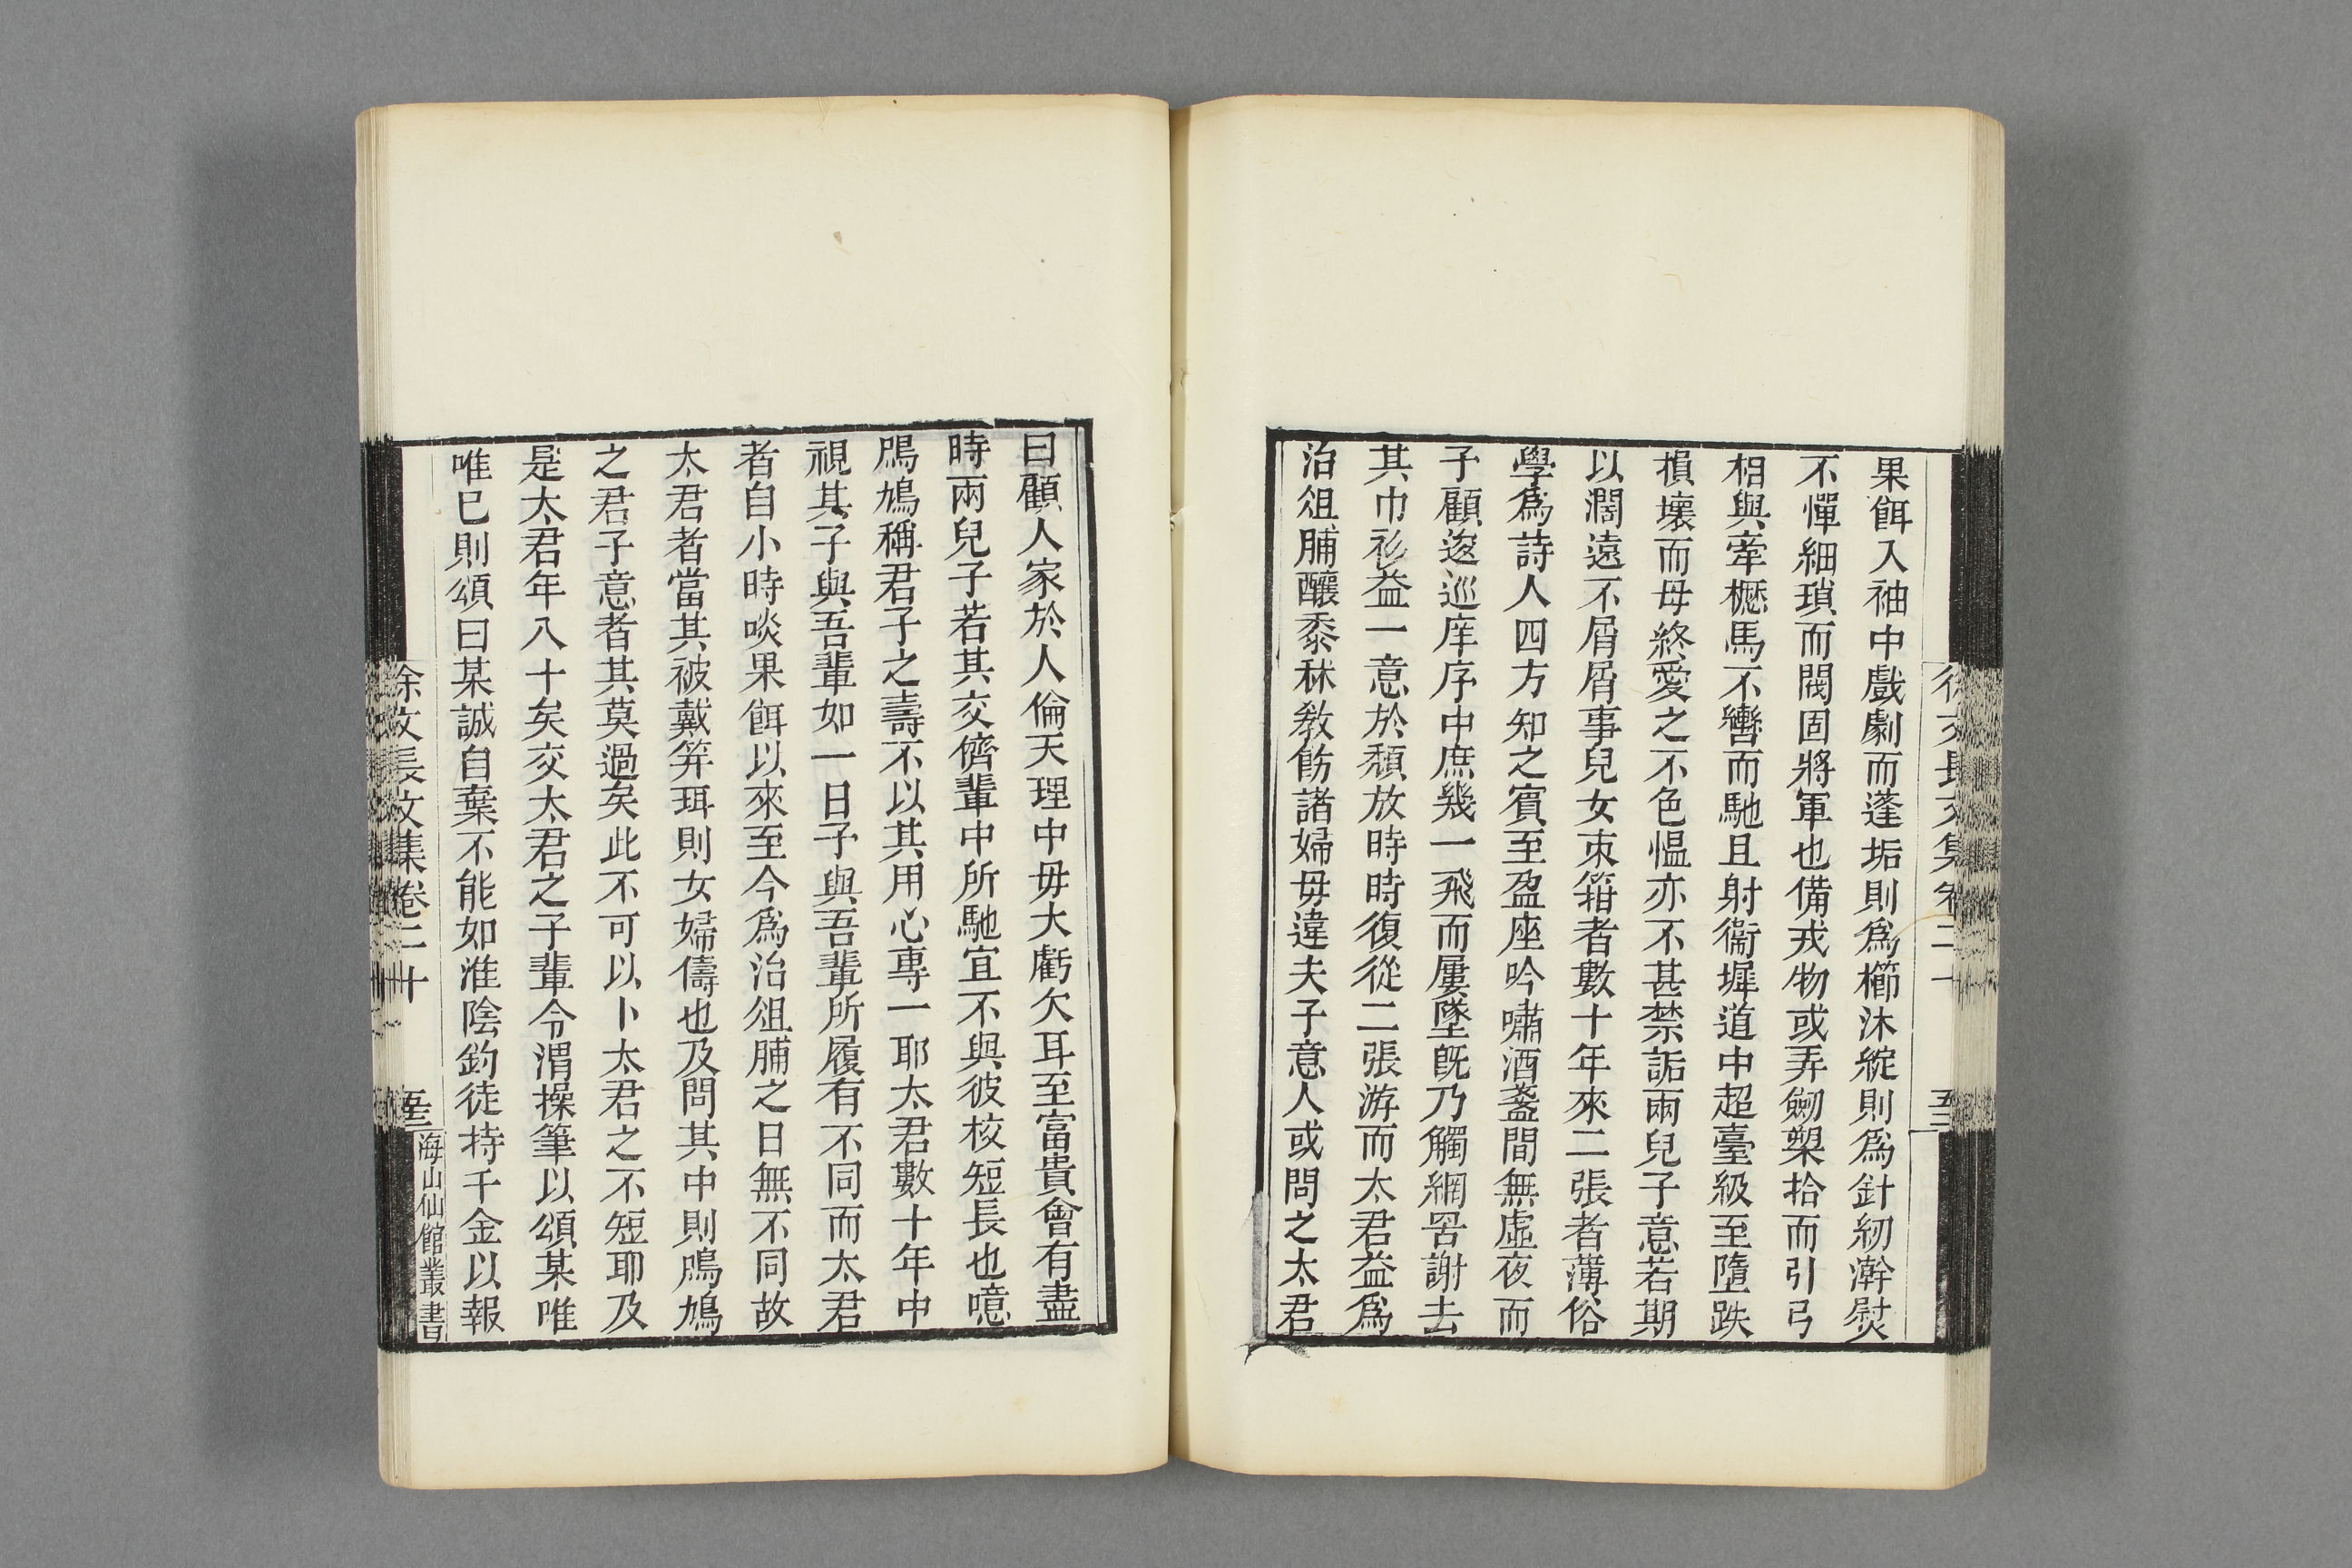 徐文長文集卷二十
五二
果餌入袖中戲劇而蓬垢則爲櫛沐綻則爲針紉澣熨
不憚細瑣而閥固將軍也備戎物或弄劒槊拾而引弓
相與牽櫪馬不轡而馳且射衞墀道中超臺級至墮跌
損壞而母終愛之不色慍亦不甚禁詬兩兒子意若期
以濶遠不屑屑事兒女束箝者數十年來二張者薄俗
學爲詩人四方知之賓至盈座吟嘯酒盞間無虛夜而
予顧逡巡庠序中庶幾一飛而屢墜旣乃觸網罟謝去
其巾衫益一意於頹放時時復從二張游而太君益爲
治俎脯釀黍秫教飭諸婦毋違夫子意人或問之太君
曰顧人家於人倫天理中毋大虧欠耳至富貴會有盡
時兩兒子若其交儕輩中所馳宜不與彼校短長也噫
鳲鳩稱君子之壽不以其用心專一耶太君數十年中
視其子與吾輩如一日予與吾輩所履有不同而太君
者自小時啖果餌以來至今爲治俎脯之日無不同故
太君者當其被戴笄珥則女婦儔也及問其中則鳲鳩
之君子意者其莫過矣此不可以卜太君之不短耶及
是太君年八十矣交太君之子輩令渭操筆以頌某唯
唯已則頌曰某誠自棄不能如淮陰釣徒持千金以報
徐文長文集卷二十
五三
海山仙館叢書